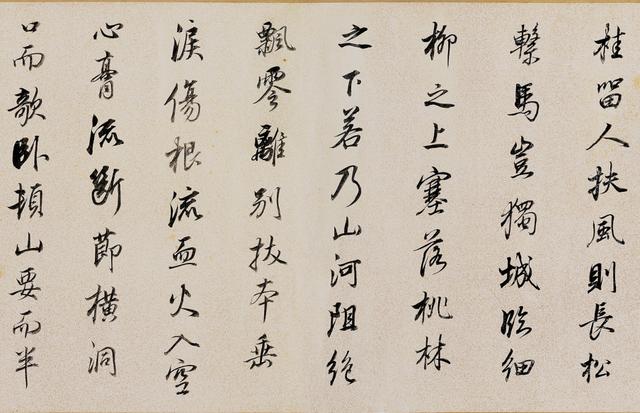 桂留人扶風則長松
繫馬豈獨城臨細
柳之上塞落桃林
之下若乃山河阻絶
飄零離別拔本垂
淚傷根流血火入空
心膏流斷節橫洞
口而欹卧頓山要而半